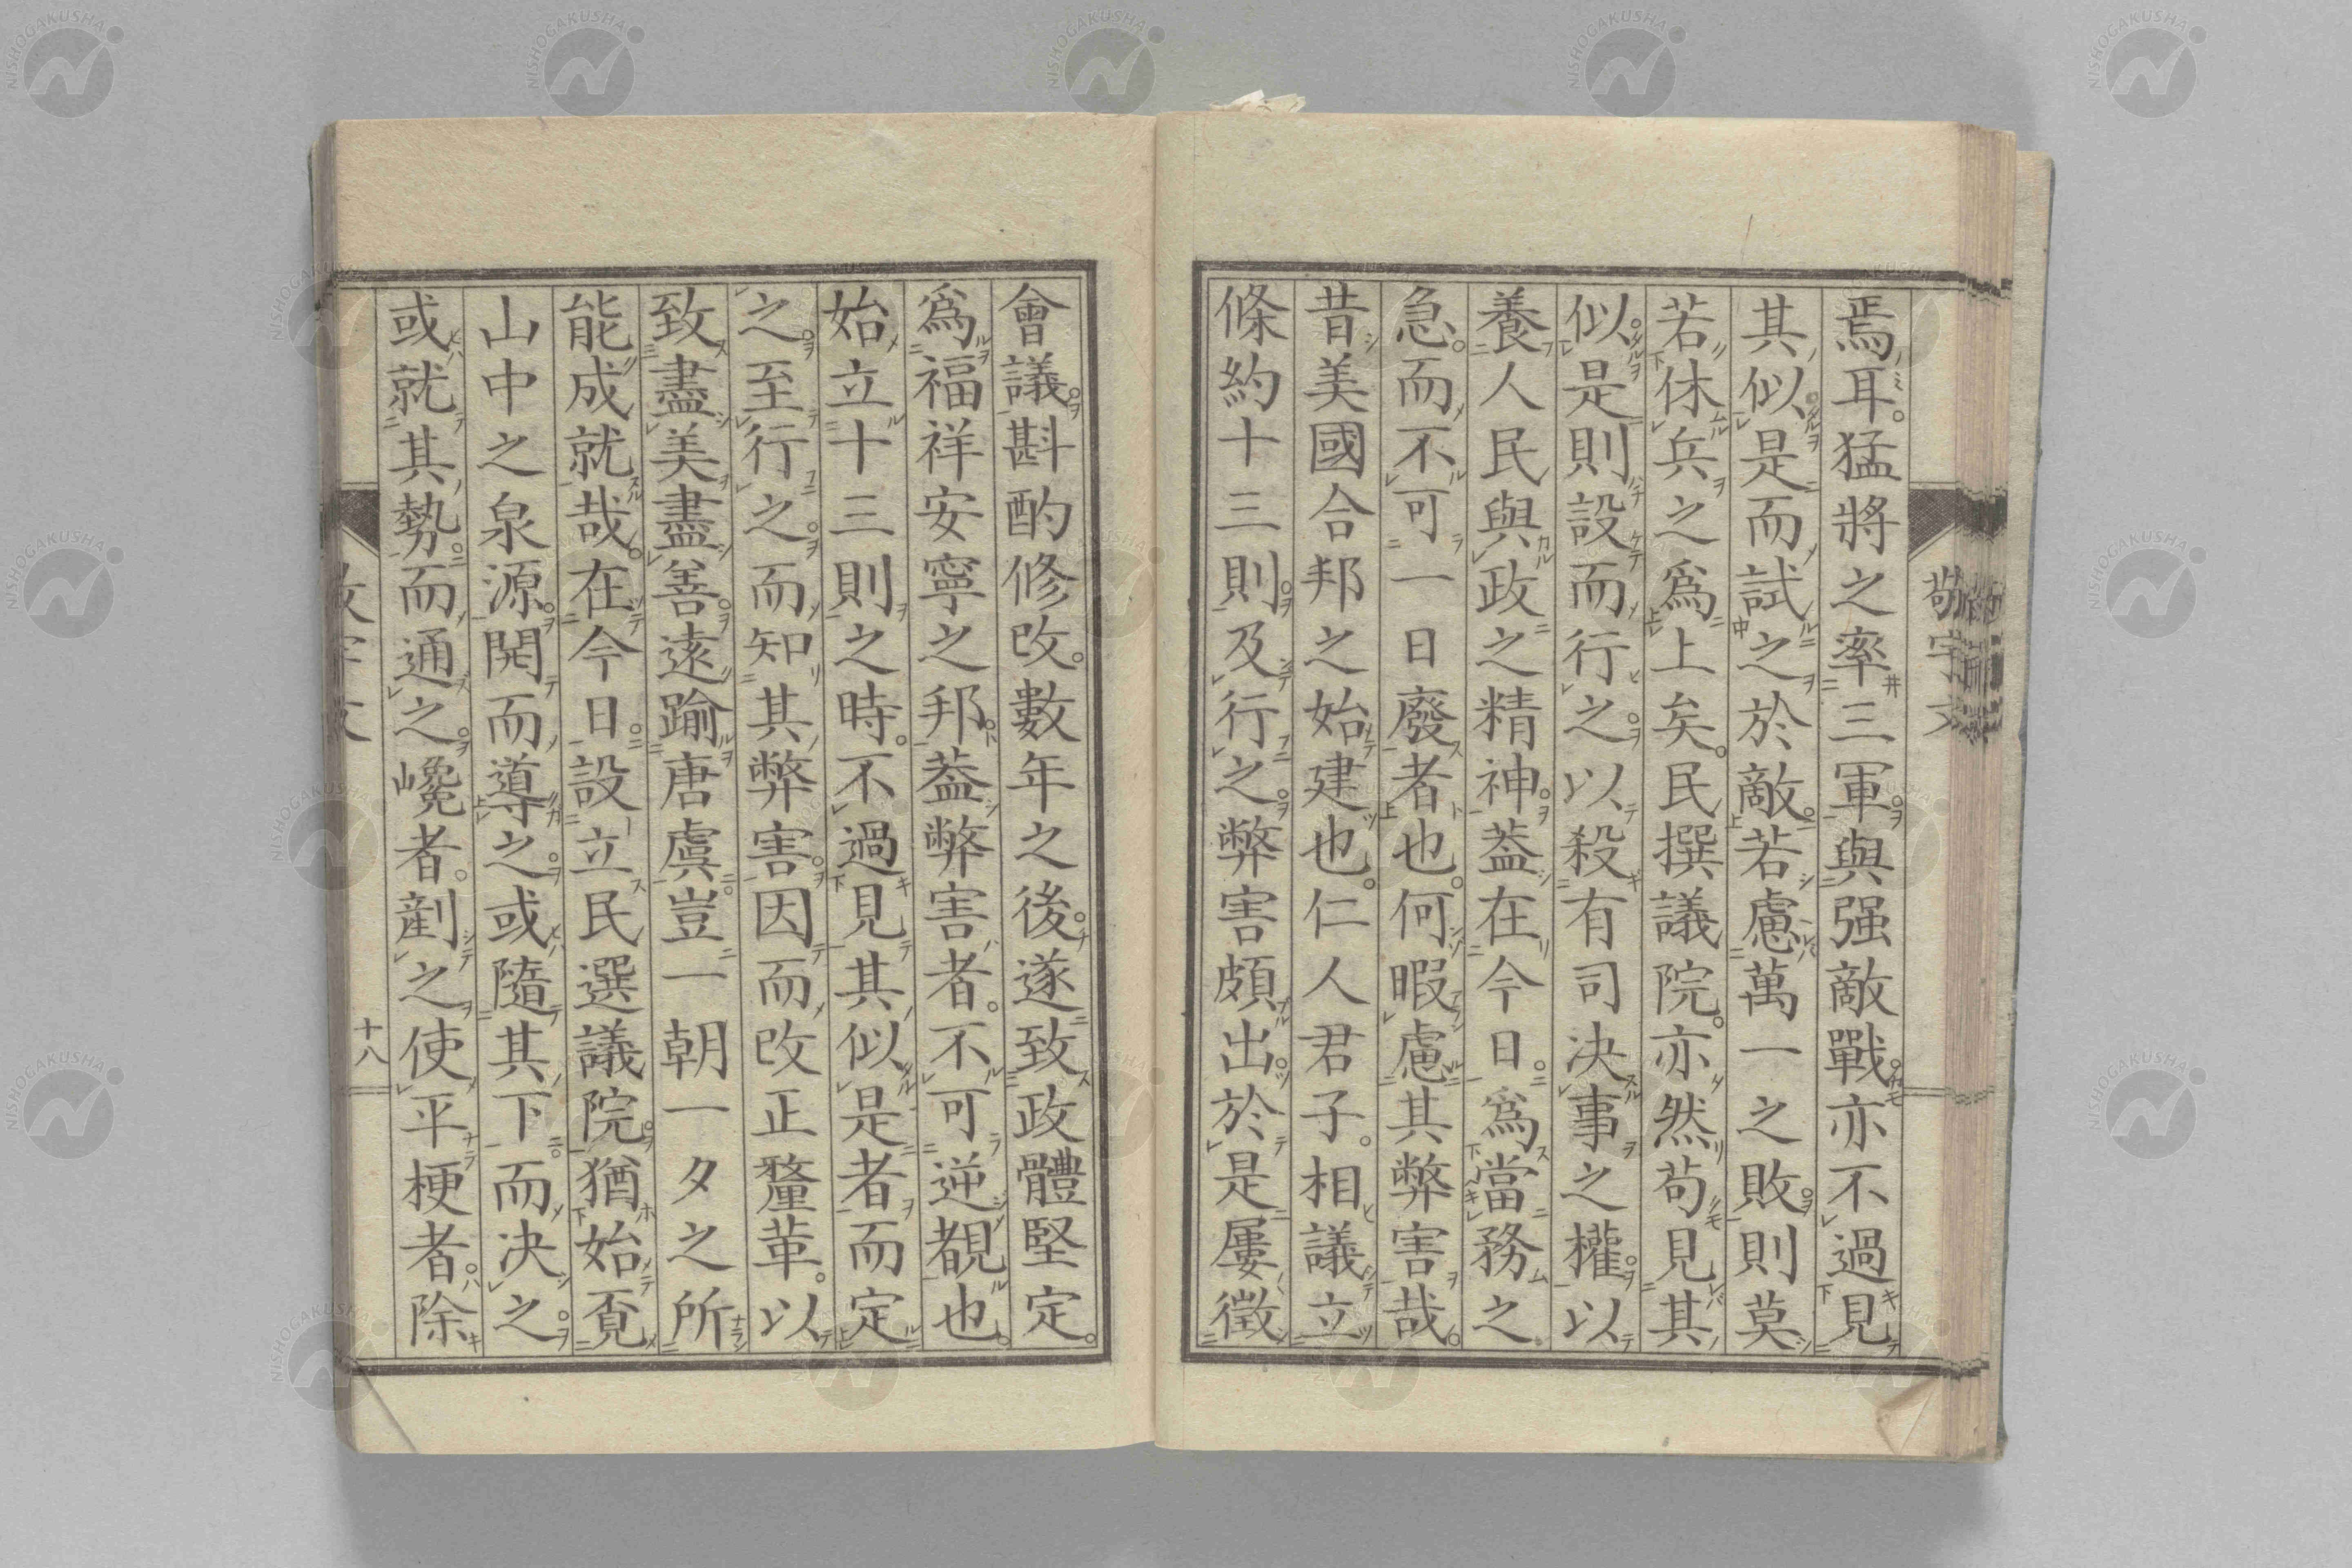 焉耳。猛將之率三軍與强敵戰。亦不過見
其似是而試之於敵。若慮萬一之敗則莫
若休兵之爲上矣。民撰議院。亦然苟見其
似是則設而行之以殺有司決事之權以
養人民與政之精神。葢在今日。爲當務之
急。而不可一日廢者也。何暇慮其弊害哉。
昔美國合邦之始建也。仁人君子。相議立
條約十三則。及行之。弊害頗出。於是屢徵
會議。斟酌修改。數年之後。遂致政體堅定。
爲福祥安寧之邦。葢弊害者。不可逆覩也。
始立十三則之時。不過見其似是者而定
之。至行之。而知其弊害。因而改正釐革。以
致盡美盡善。遠踰唐虞。豈一朝一夕之所
能成就哉。在今日。設立民選議院。猶始覓
山中之泉源。開而導之。或隨其下而决之。
或就其勢。而通之。巉者。剷之使平梗者。除
敬宇文
十八
NISHOGAKUSHA